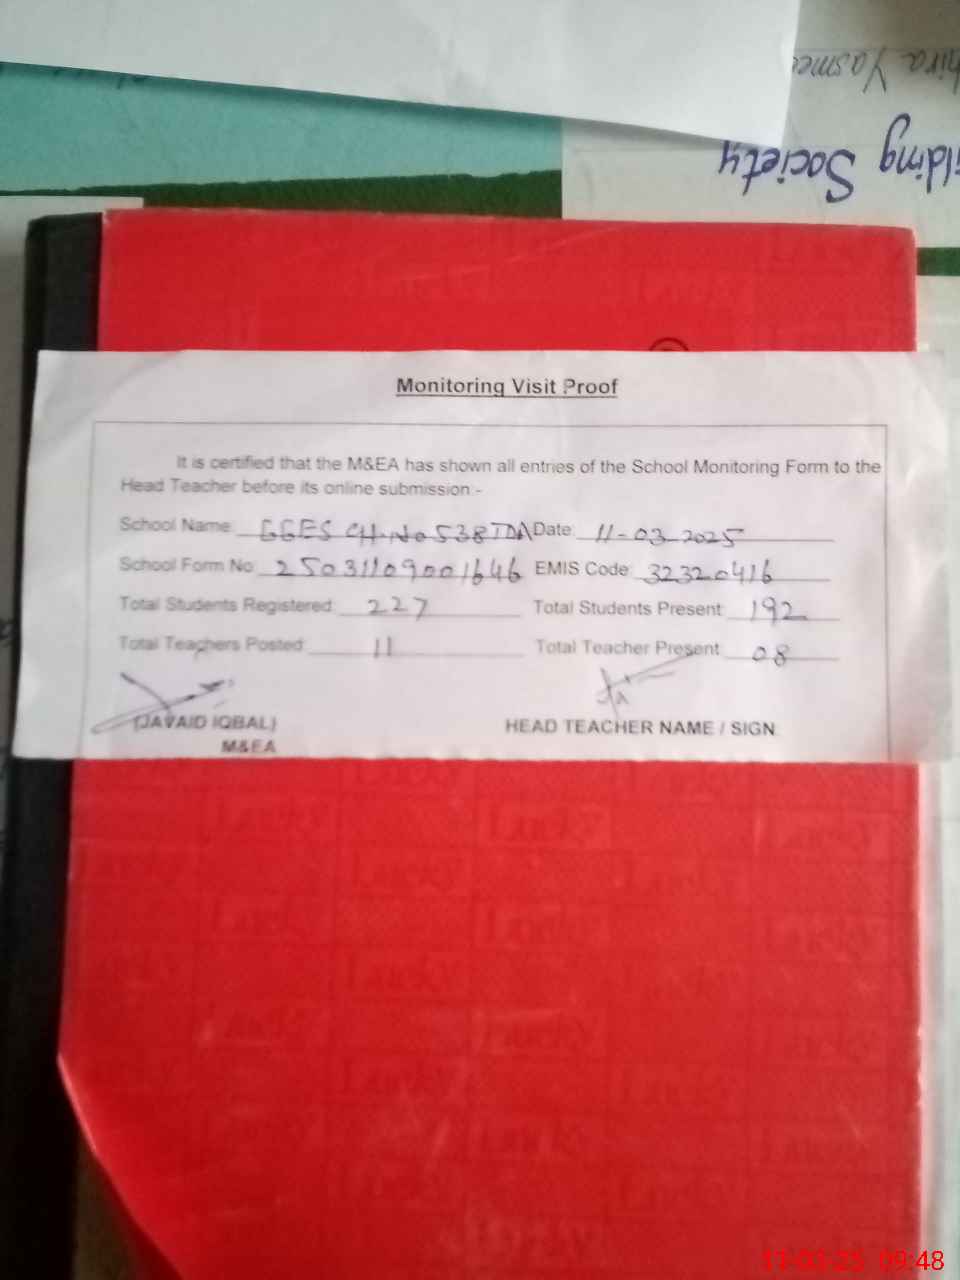 Yasmee
ilding Society
Monitoring Visit Proof
It is certified that the M&EA has shown all entries of the School Monitoring Form to the
Head Teacher before its online submission:-
School Name: GGES CH.No 538 TDA Date: 11-03-2025
School Form No: 25031109001646 EMIS Code: 32320416
Total Students Registered: 227 Total Students Present: 192
Total Teachers Posted: 11 Total Teacher Present: 08
(JAVAID IQBAL) HEAD TEACHER NAME / SIGN:
M&EA
09:48